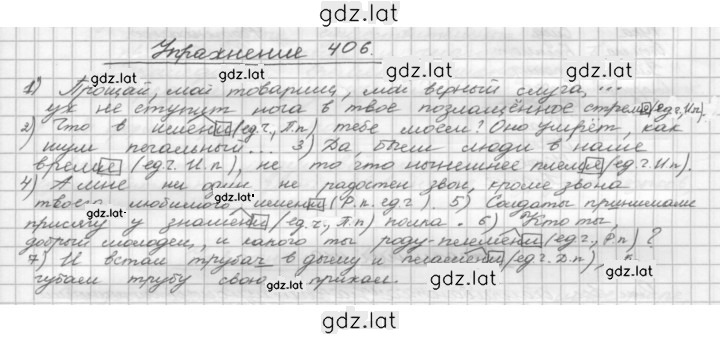 gdz.lat
Упражнение 406.
gdz.lat gdz.lat gdz.lat
1) Прощай, мой товарищ, мой верный слуга, ...
уж не ступит нога в твоё позлащённое стремя (ед.ч, И.п).
2) Что в имени (ед.ч., П.п) тебе моем? Оно умрёт, как
gdz.lat gdz.lat gdz.lat
шум печальный... 3) Да, были люди в наше
время (ед.ч. И.п), не то что нынешнее племя (ед.ч.И.п).
4) А мне ни один не радостен звон, кроме звона
gdz.lat
твоего любимого имени (Р.п. ед.ч). 5) Солдаты принимали
gdz.lat gdz.lat
присягу у знамени (ед.ч., П.п) полка. 6) Кто ты,
добрый молодец, и какого ты роду-племени (ед.ч., Р.п)?
7) И встал трубач в дыму и пламени (ед.ч. Д.п),
gdz.lat gdz.lat gdz.lat
губам трубу свою прижал.
gdz.lat